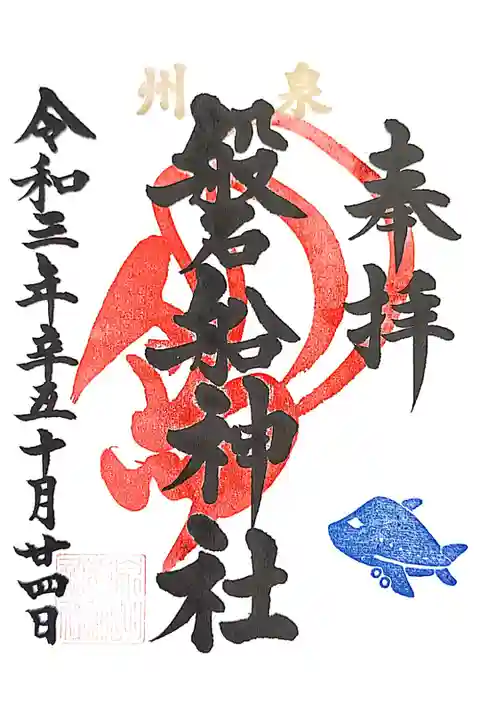 泉州
奉拝
磐船神社
令和三年辛丑十月廿四日